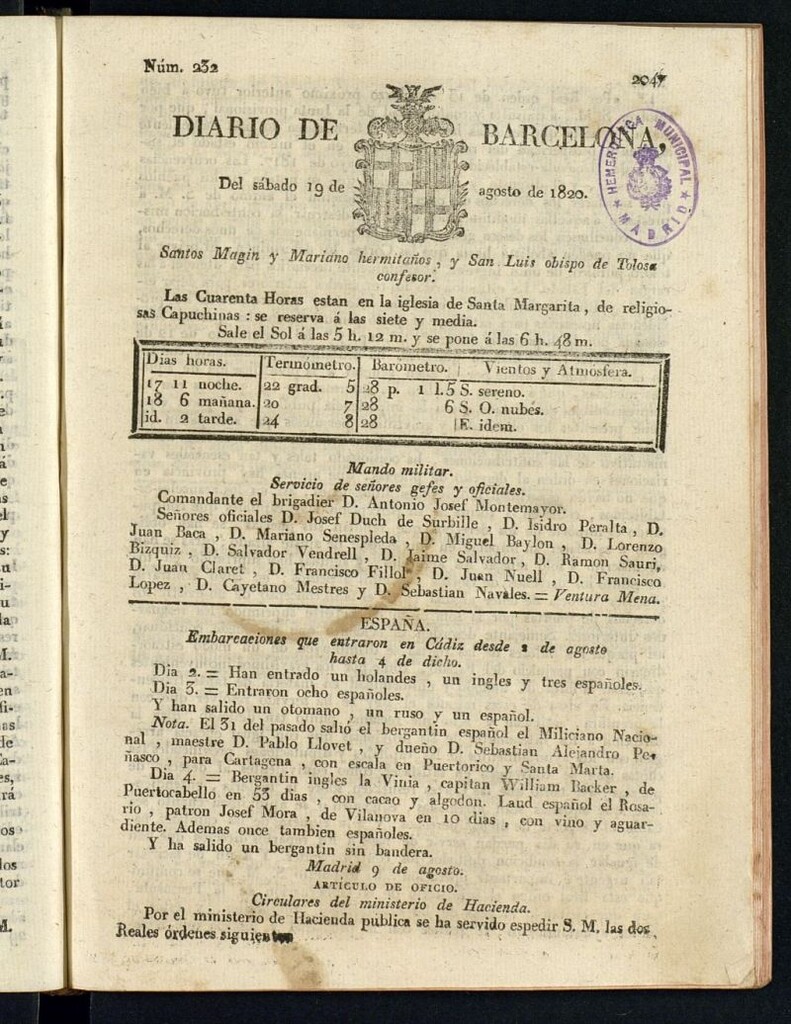 Núm. 232
2047
DIARIO DE BARCELONA,
Del sábado 19 de agosto de 1820.
HEMEROTECA MUNICIPAL
★ MADRID ★
Santos Magin y Mariano hermitaños, y San Luis obispo de Tolosa
confesor.
Las Cuarenta Horas estan en la iglesia de Santa Margarita, de religio-
sas Capuchinas: se reserva á las siete y media.
Sale el Sol á las 5 h. 12 m. y se pone á las 6 h. 48 m.
Dias horas. Termómetro. Barómetro. Vientos y Atmósfera.
17 11 noche. 22 grad. 5 28 p. 1 l. 5 S. sereno.
18 6 mañana. 20 7 28 6 S. O. nubes.
id. 2 tarde. 24 8 28 E. idem.
Mando militar.
Servicio de señores gefes y oficiales.
Comandante el brigadier D. Antonio Josef Montemayor.
Señores oficiales D. Josef Duch de Surbille, D. Isidro Peralta, D.
Juan Baca, D. Mariano Senespleda, D. Miguel Baylon, D. Lorenzo
Bizquiz, D. Salvador Vendrell, D. Jaime Salvador, D. Ramon Sauri,
D. Juan Claret, D. Francisco Fillol, D. Juan Nuell, D. Francisco
Lopez, D. Cayetano Mestres y D. Sebastian Navales. = Ventura Mena.
ESPAÑA.
Embarcaciones que entraron en Cádiz desde 2 de agosto
hasta 4 de dicho.
Dia 2. = Han entrado un holandes, un ingles y tres españoles.
Dia 3. = Entraron ocho españoles.
Y han salido un otomano, un ruso y un español.
Nota. El 31 del pasado salió el bergantin español el Miliciano Nacio-
nal, maestre D. Pablo Llovet, y dueño D. Sebastian Alejandro Pe-
ñasco, para Cartagena, con escala en Puertorico y Santa Marta.
Dia 4. = Bergantin ingles la Vinia, capitan William Backer, de
Puertocabello en 53 dias, con cacao y algodon. Laud español el Rosa-
rio, patron Josef Mora, de Vilanova en 10 dias, con vino y aguar-
diente. Ademas once tambien españoles.
Y ha salido un bergantin sin bandera.
Madrid 9 de agosto.
ARTÍCULO DE OFICIO.
Circulares del ministerio de Hacienda.
Por el ministerio de Hacienda pública se ha servido espedir S. M. las dos
Reales órdenes siguientes